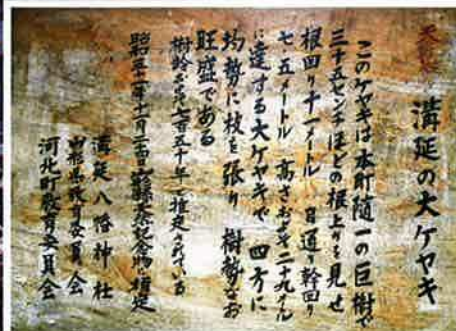 天然記念物
溝延の大ケヤキ
このケヤキは本町随一の巨樹で
三十五センチほどの根上りを見せ
根回り十一メートル 目通り幹回り
七・五メートル 高さおよそ二十九メートル
に達する大ケヤキで 四方に
均勢に枝を張り 樹勢なお
旺盛である
樹齢およそ七百五十年と推定されている
昭和 年十一月 日 県天然記念物に指定
溝延八幡神社
山形県教育委員会
河北町教育委員会